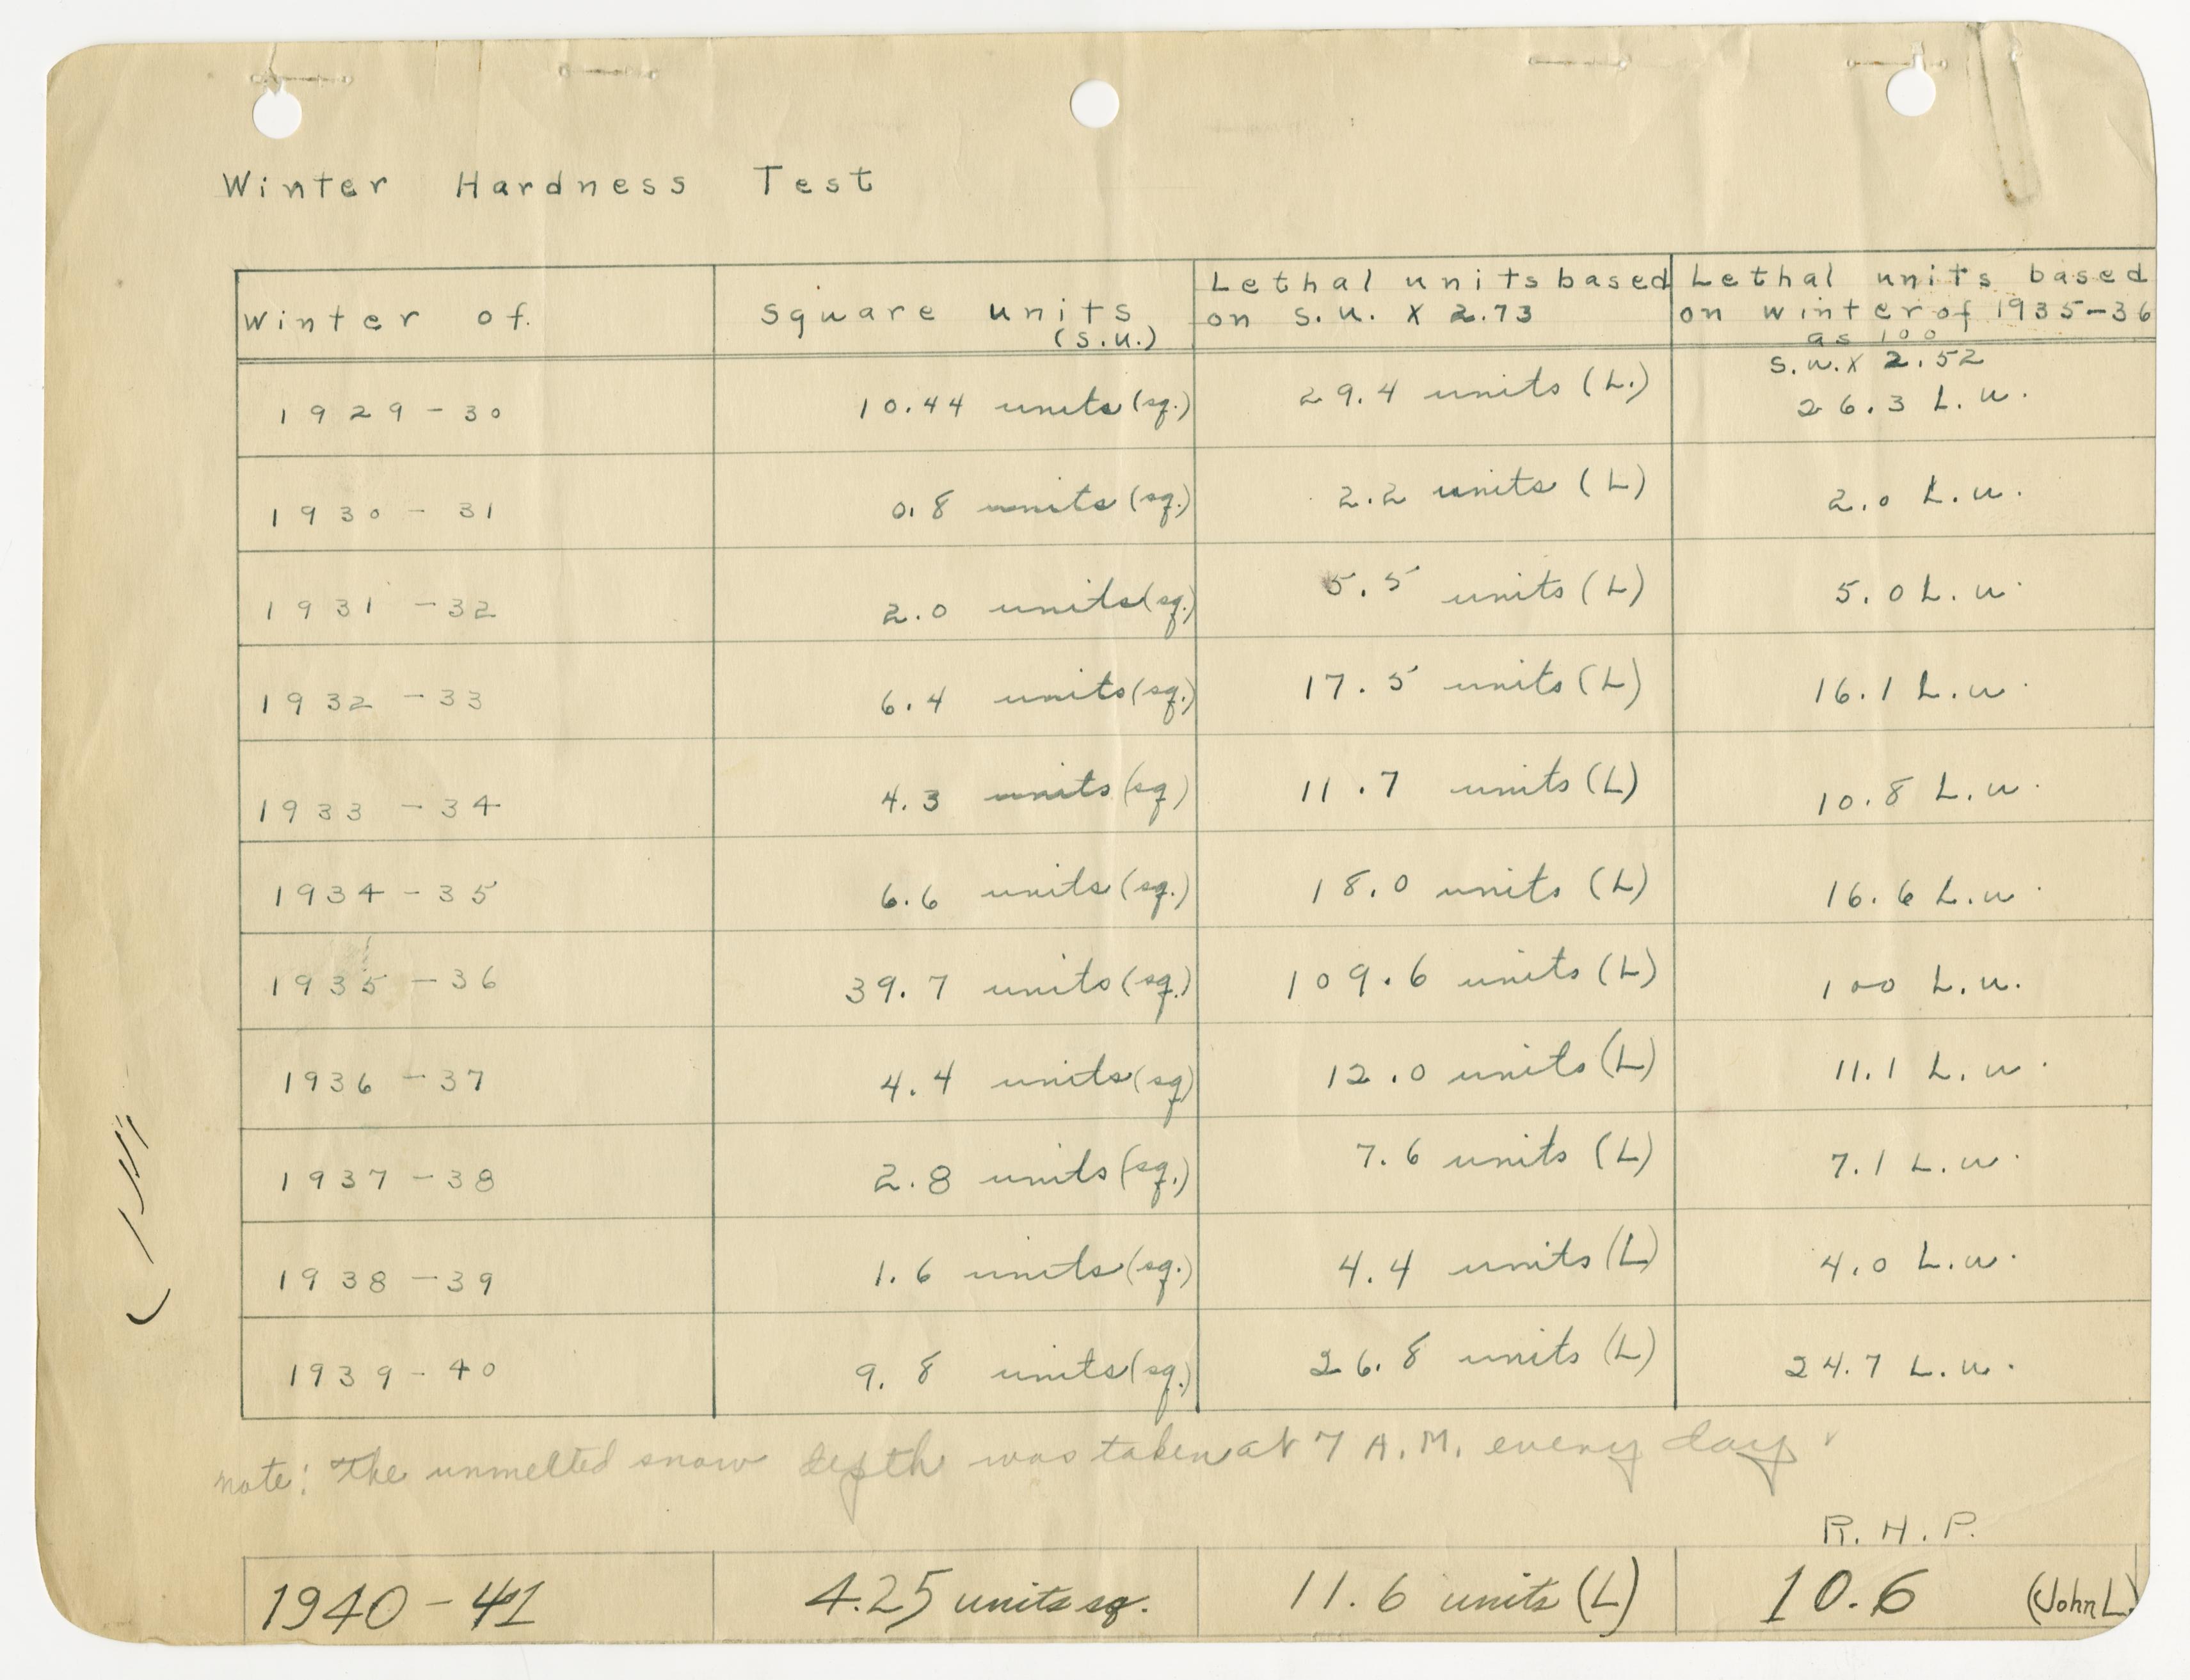 Winter Hardness Test
Winter of. Square units Lethal units based Lethal units based
(s.u.) on s.u. X 2.73 on winter of 1935-36
as 100
s.u. X 2.52
1929-30 10.44 units (sq.) 29.4 units (L.) 26.3 L.u.
1930-31 0.8 units (sq.) 2.2 units (L) 2.0 L.u.
1931-32 2.0 units (sq.) 5.5 units (L) 5.0 L.u.
1932-33 6.4 units (sq.) 17.5 units (L) 16.1 L.u.
1933-34 4.3 units (sq) 11.7 units (L) 10.8 L.u.
1934-35 6.6 units (sq.) 18.0 units (L) 16.6 L.u.
1935-36 39.7 units (sq.) 109.6 units (L) 100 L.u.
1936-37 4.4 units (sq) 12.0 units (L) 11.1 L.u.
1937-38 2.8 units (sq.) 7.6 units (L) 7.1 L.u.
1938-39 1.6 units (sq.) 4.4 units (L) 4.0 L.u.
1939-40 9.8 units (sq.) 26.8 units (L) 24.7 L.u.
note: The unmelted snow depth was taken at 7 A.M. every day
R.H.P.
1940-41 4.25 units sq. 11.6 units (L) 10.6 (John L.)